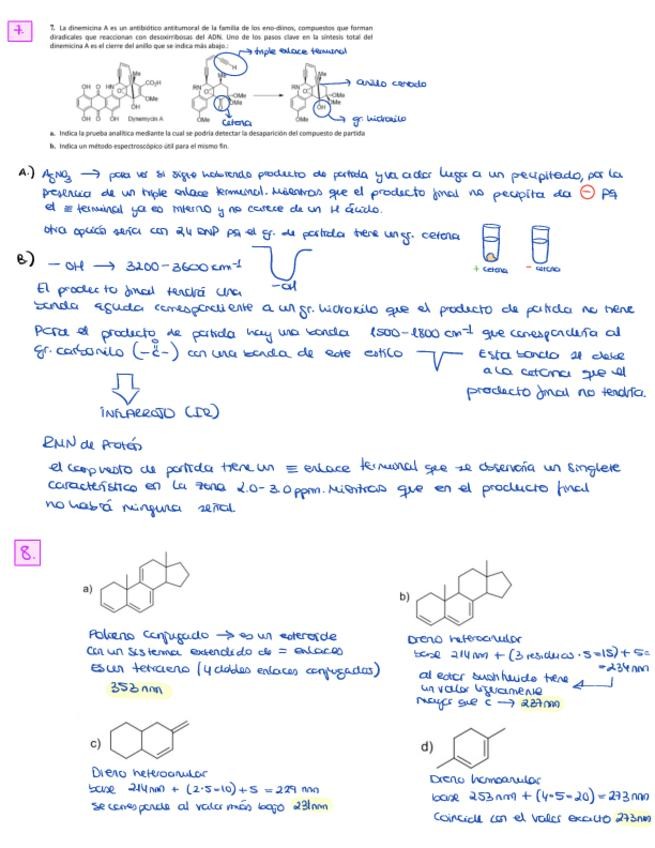 7.
7. La dinemicina A es un antibiótico antitumoral de la familia de los eno-diinos, compuestos que forman
diradicales que reaccionan con desoxirribosas del ADN. Uno de los pasos clave en la síntesis total del
dinemicina A es el cierre del anillo que se indica más abajo:
triple enlace terminal
anillo cerrado
cetona
gr. hidroxilo
OH O HN Me CO₂H OMe OH O OH OH Dynemycin A
RN Me O OMe OMe O H
RN Me O OMe OMe OH
a. Indica la prueba analítica mediante la cual se podría detectar la desaparición del compuesto de partida
b. Indica un método espectroscópico útil para el mismo fin.
A.) AgNO₃ → para ver si sigue habiendo producto de partida y va a dar lugar a un precipitado, por la
presencia de un triple enlace terminal. Mientras que el producto final no precipita da ⊖ pq
el ≡ terminal ya es interno y no carece de un H ácido.
otra opción sería con 2,4 DNP pq el gr. de partida tiene un gr. cetona
+ cetona - cetona
B.) -OH → 3200-3600 cm⁻¹
-OH
El producto final tendrá una
banda aguda correspondiente a un gr. hidroxilo que el producto de partida no tiene
Para el producto de partida hay una banda 1500-1800 cm⁻¹ que correspondería al
gr. carbonilo (-C-) con una banda de este estilo
O
Esta banda se debe
a la cetona que el
producto final no tendría.
INFRARROJO (IR)
RMN de Protón
el compuesto de partida tiene un ≡ enlace terminal que se observaría un singlete
característico en la zona 2.0-3.0 ppm. Mientras que en el producto final
no habrá ninguna señal
8.
a)
Polieno conjugado → es un esteroide
con un sistema extendido de = enlaces
Es un tetraeno (4 dobles enlaces conjugados)
353 nm
b)
Dieno heteroanular
base 214 nm + (3 residuos · 5 = 15) + 5 =
= 234 nm
al estar sustituido tiene
un valor ligeramente
mayor que c → 237 nm
c)
Dieno heteroanular
base 214 nm + (2·5=10) + 5 = 229 nm
se corresponde al valor más bajo 231 nm
d)
Dieno homoanular
base 253 nm + (4·5=20) = 273 nm
Coincide con el valor exacto 273 nm